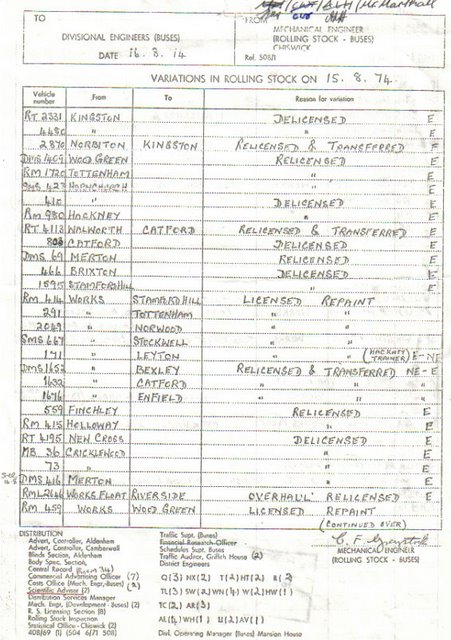 TO
FROM
DIVISIONAL ENGINEERS (BUSES)
MECHANICAL ENGINEER
(ROLLING STOCK - BUSES)
CHISWICK
DATE 16. 8. 74
Ref. 508/1
VARIATIONS IN ROLLING STOCK ON 15. 8. 74.
Vehicle number From To Reason for variation
RT 2331 KINGSTON DELICENSED E
4430 " " E
2870 NORBITON KINGSTON RELICENSED & TRANSFERRED E
DMS 1409 WOOD GREEN RELICENSED E
RM 1720 TOTTENHAM " E
SMS 427 HORNCHURCH " E
410 " DELICENSED E
RM 980 HACKNEY " E
RT 4113 WALWORTH CATFORD RELICENSED & TRANSFERRED E
CATFORD DELICENSED E
DMS 69 MERTON RELICENSED E
466 BRIXTON DELICENSED E
1595 STAMFORD HILL " E
RM 414 WORKS STAMFORD HILL LICENSED REPAINT
291 " TOTTENHAM " "
2049 " NORWOOD " "
SMS 667 " STOCKWELL " "
171 " LEYTON " " (HACKNEY TRAINER) E-NE
DMS 1652 " BEXLEY RELICENSED & TRANSFERRED NE-E
1632 " CATFORD " " "
1676 " ENFIELD " " "
559 FINCHLEY RELICENSED E
RM 415 HOLLOWAY " E
RT 4195 NEW CROSS DELICENSED E
MB 36 CRICKLEWOOD " E
73 " " E
DMS 416 MERTON " E
RML 2646 WORKS FLOAT RIVERSIDE OVERHAUL RELICENSED E
RM 459 WORKS WOOD GREEN LICENSED REPAINT
(CONTINUED OVER)
DISTRIBUTION
Advert. Controller, Aldenham
Advert. Controller, Camberwell
Blinds Section, Aldenham
Body Spec. Section,
Central Record (Room 314)
Commercial Advertising Officer (7)
Costs Office (Mech. Engr.,Buses) (2)
Scientific Advisor (2)
Distribution Services Manager
Mech. Engr. (Development - Buses) (2)
R. S. Licensing Section (8)
Rolling Stock Inspection
Statistical Office - (2)
408/69 (1) (504 6/71 508)
Traffic Supt. (Buses)
Financial Research Officer
Schedules Supt. Buses
Traffic Auditor, Griffith House (2)
District Engineers
Q(3) NX(2) T(2) HT(2) R(2)
TL(3) SW(2) WN(4) W(2) HW(1)
TC(2) AR(3)
AL(4) WH(1) U(2) AV(1)
Divl. Operating Manager (Buses) Mansion House
MECHANICAL ENGINEER
(ROLLING STOCK - BUSES)